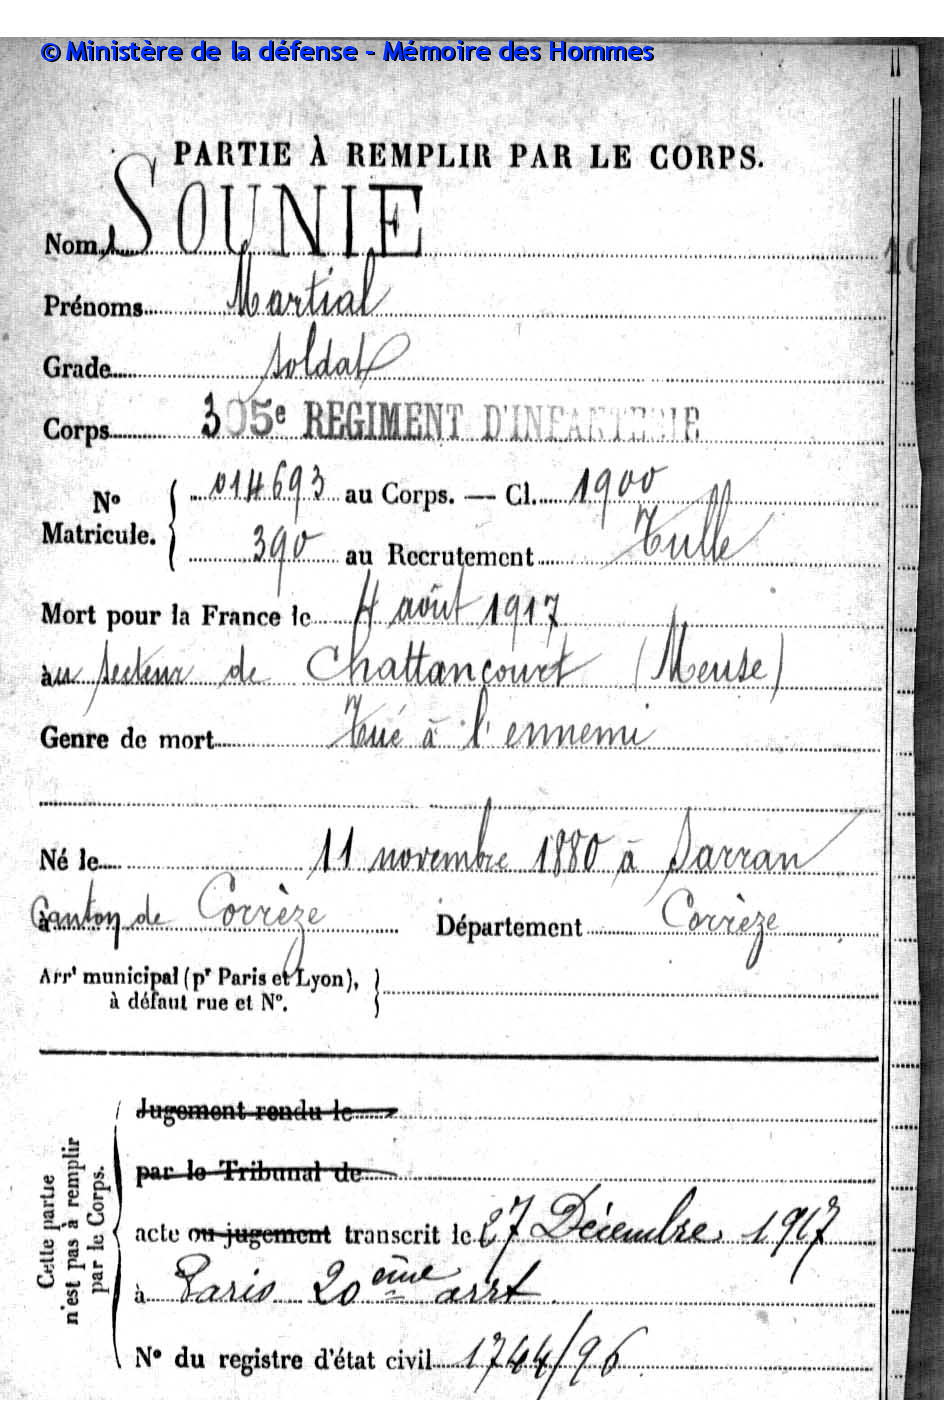 © Ministère de la défense - Mémoire des Hommes
PARTIE À REMPLIR PAR LE CORPS.
Nom SOUNIE
Prénoms Martial
Grade soldat
Corps 305e REGIMENT D'INFANTERIE
10
Nº Matricule. 014693 au Corps. — Cl. 1900
390 au Recrutement Tulle
Mort pour la France le 4 août 1917
au secteur de Chattancourt (Meuse)
Genre de mort Tué à l'ennemi
Né le 11 novembre 1880 à Sarran
à Canton de Corrèze Département Corrèze
Arrt municipal (pr Paris et Lyon),
à défaut rue et Nº.
Cette partie
n'est pas à remplir
par le Corps.
Jugement rendu le
par le Tribunal de
acte ou jugement transcrit le 27 Décembre 1917
à Paris 20ème arrt
Nº du registre d'état civil 1744/96